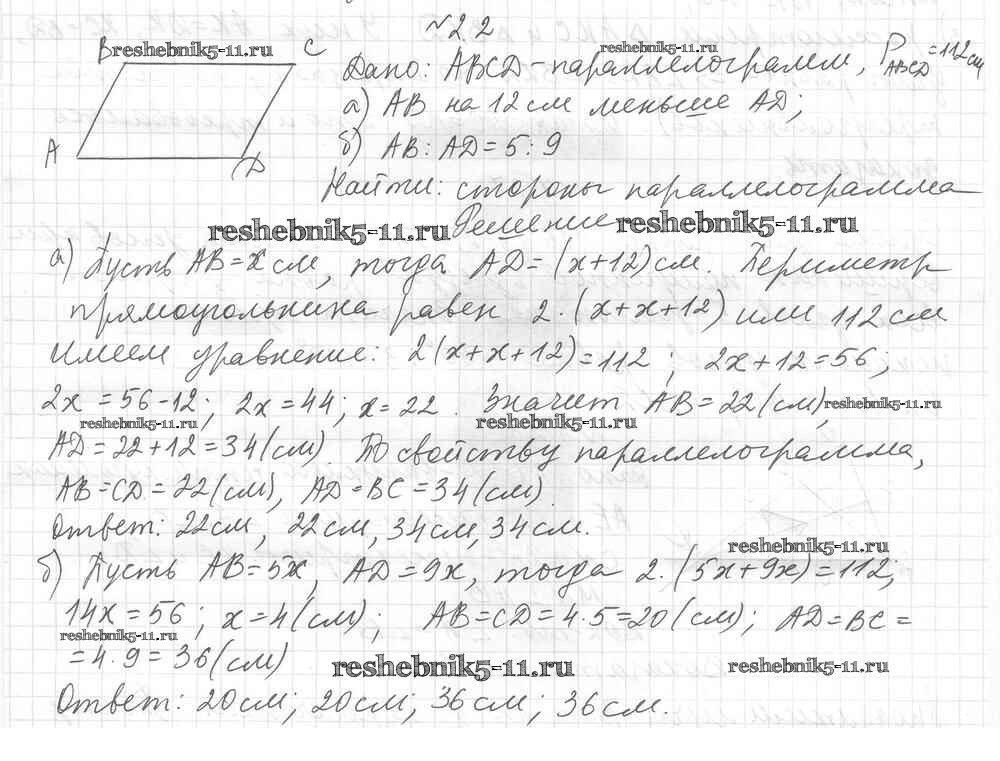 №2.2
B reshebnik5-11.ru C
reshebnik5-11.ru
Дано: ABCD - параллелограмм, P ABCD = 112 см
а) AB на 12 см меньше AD;
A
б) AB : AD = 5 : 9
D
Найти: стороны параллелограмма
reshebnik5-11.ru Решение reshebnik5-11.ru
а) Пусть AB = x см, тогда AD = (x+12) см. Периметр
прямоугольника равен 2·(x+x+12) или 112 см
Имеем уравнение: 2(x+x+12) = 112; 2x+12=56;
2x = 56-12; 2x = 44; x = 22. Значит AB = 22 (см), reshebnik5-11.ru
reshebnik5-11.ru reshebnik5-11.ru
AD = 22+12 = 34 (см). По свойству параллелограмма,
AB = CD = 22 (см), AD = BC = 34 (см).
Ответ: 22 см, 22 см, 34 см, 34 см.
reshebnik5-11.ru
б) Пусть AB = 5x, AD = 9x, тогда 2·(5x+9x) = 112;
14x = 56; x = 4 (см); AB = CD = 4·5 = 20 (см); AD = BC =
reshebnik5-11.ru
= 4·9 = 36 (см)
reshebnik5-11.ru reshebnik5-11.ru
Ответ: 20 см; 20 см; 36 см; 36 см.